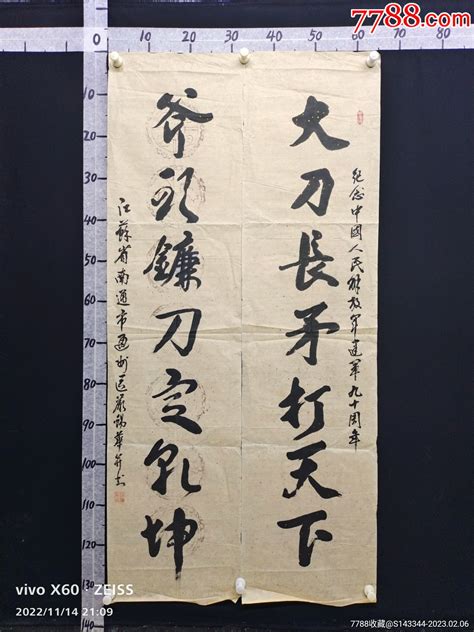 7788.com
0 10 20 30 40 50 60 70 80
10
20
30
40
50
60
70
80
90
100
110
120
130
紀念中國人民解放軍建軍九十周年
大刀長矛打天下
斧頭鐮刀定乾坤
江蘇省南通市通州區嚴錫華并書
vivo X60 · ZEISS
2022/11/14 21:09
7788收藏@S143344-2023.02.06